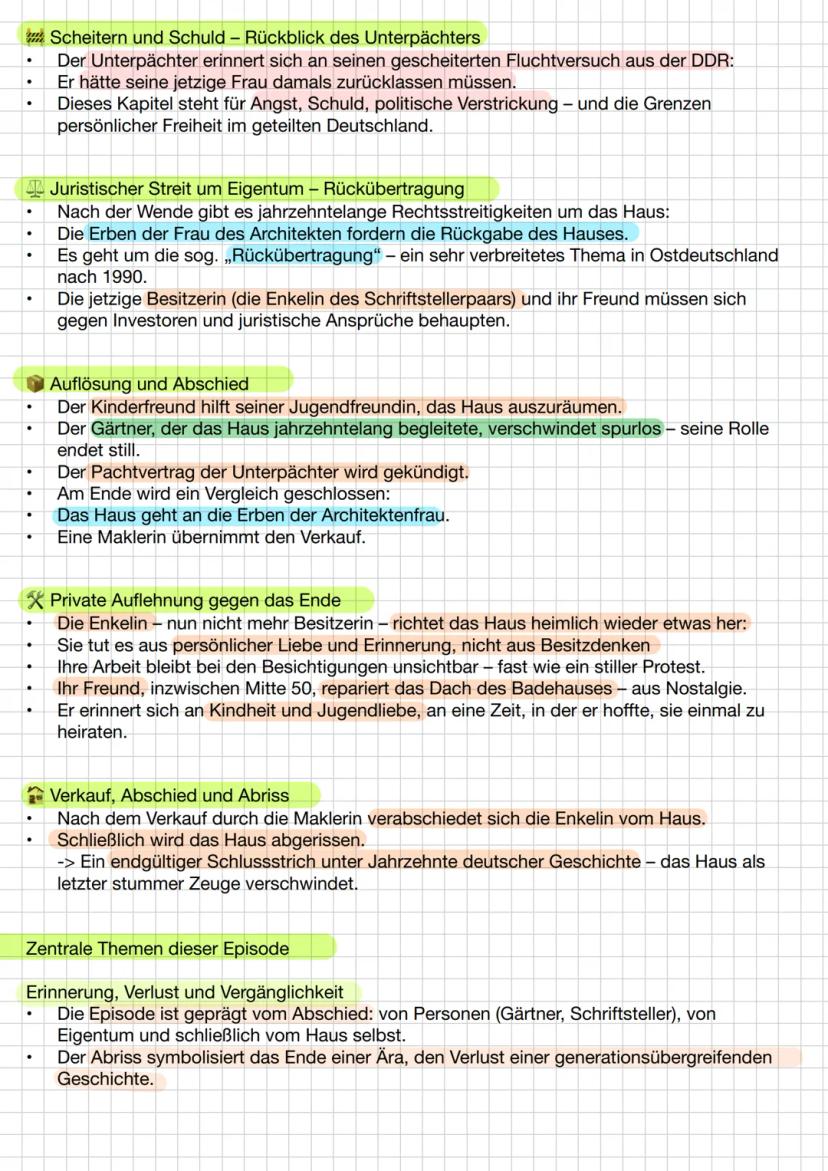 🚧 Scheitern und Schuld – Rückblick des Unterpächters
• Der Unterpächter erinnert sich an seinen gescheiterten Fluchtversuch aus der DDR:
• Er hätte seine jetzige Frau damals zurücklassen müssen.
• Dieses Kapitel steht für Angst, Schuld, politische Verstrickung – und die Grenzen
persönlicher Freiheit im geteilten Deutschland.
⚖️ Juristischer Streit um Eigentum – Rückübertragung
• Nach der Wende gibt es jahrzehntelange Rechtsstreitigkeiten um das Haus:
• Die Erben der Frau des Architekten fordern die Rückgabe des Hauses.
• Es geht um die sog. „Rückübertragung“ – ein sehr verbreitetes Thema in Ostdeutschland
nach 1990.
• Die jetzige Besitzerin (die Enkelin des Schriftstellerpaars) und ihr Freund müssen sich
gegen Investoren und juristische Ansprüche behaupten.
📦 Auflösung und Abschied
• Der Kinderfreund hilft seiner Jugendfreundin, das Haus auszuräumen.
• Der Gärtner, der das Haus jahrzehntelang begleitete, verschwindet spurlos – seine Rolle
endet still.
• Der Pachtvertrag der Unterpächter wird gekündigt.
• Am Ende wird ein Vergleich geschlossen:
• Das Haus geht an die Erben der Architektenfrau.
• Eine Maklerin übernimmt den Verkauf.
🛠️ Private Auflehnung gegen das Ende
• Die Enkelin – nun nicht mehr Besitzerin – richtet das Haus heimlich wieder etwas her:
• Sie tut es aus persönlicher Liebe und Erinnerung, nicht aus Besitzdenken
• Ihre Arbeit bleibt bei den Besichtigungen unsichtbar – fast wie ein stiller Protest.
• Ihr Freund, inzwischen Mitte 50, repariert das Dach des Badehauses – aus Nostalgie.
• Er erinnert sich an Kindheit und Jugendliebe, an eine Zeit, in der er hoffte, sie einmal zu
heiraten.
🏚️ Verkauf, Abschied und Abriss
• Nach dem Verkauf durch die Maklerin verabschiedet sich die Enkelin vom Haus.
• Schließlich wird das Haus abgerissen.
-> Ein endgültiger Schlussstrich unter Jahrzehnte deutscher Geschichte – das Haus als
letzter stummer Zeuge verschwindet.
Zentrale Themen dieser Episode
Erinnerung, Verlust und Vergänglichkeit
• Die Episode ist geprägt vom Abschied: von Personen (Gärtner, Schriftsteller), von
Eigentum und schließlich vom Haus selbst.
• Der Abriss symbolisiert das Ende einer Ära, den Verlust einer generationsübergreifenden
Geschichte.